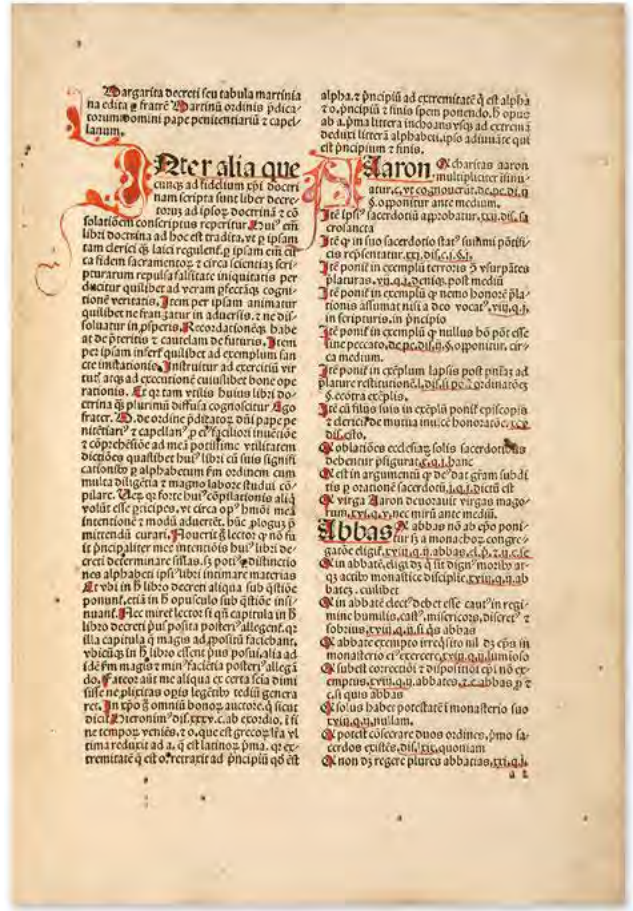 Margarita decreti seu tabula martinia
na edita ꝑ fratrē Martinū ordinis p̄dica-
torum domini pape penitentiariū ⁊ capel-
lanum.
INter alia que
cunqꝫ ad fidelium xp̄i doctri
nam scripta sunt liber decre-
torum ad ipsoꝝ doctrinā ⁊ cō
solatiōem conscriptus reperitur. Hui⁹ em̄
libri doctrina ad hoc est tradita, vt ꝑ ipsam
tam clerici qꝫ laici regulent̄. ꝑ ipsam em̄ cir
ca fidem sacramentoꝝ ⁊ circa scientiaꝫ scri-
pturarum repulsa falsitate iniquitatis per
ducitur quilibet ad veram ꝑfectāqꝫ cogni-
tionē veritatis. Item per ipsam animatur
quilibet ne frangatur in aduersis. ⁊ ne dis-
soluatur in ꝓsperis. Recordationēqꝫ habe
at de p̄teritis ⁊ cautelam de futuris. Item
per ipsam infert̄ quilibet ad exemplum san
cte imitationis. Instruitur ad exercitiū vir
tut̄ atqꝫ ad executionē cuiuslibet bone ope
rationis. Et qꝛ tam vtilis huius libri do-
ctrina qꝫ plurimū diffusa cognoscitur Ego
frater. M. de ordine p̄dicatoꝝ dn̄i pape pe
nitētiari⁹ ⁊ capellan⁹, ꝓ faciliori inuētiōe
⁊ cōp̄hēsiōe ad meā potissime vtilitatem
dictiōes quaslibet hui⁹ libri cū suis signifi
cationibꝫ ꝑ alphabetum ꝑm ordinem cum
multa diligētia ⁊ magno labore studui cō-
pilare. Ueꝝ qꝛ forte hui⁹ cōpilationis aliq̄
volūt esse ꝑticipes, vt circa op⁹ hmōi meā
intentionē ⁊ modū aduertēt. hūc ꝓlogum p̄
mittendū curaui. Nouerit g̊ lector qꝫ nō fu
it p̄ncipaliter mee intentiōis hui⁹ libri de-
creti determinare sn̄ias. sꝫ poti⁹ distinctio
nes alphabeti ips⁹ libri intimare materias
Et vbi in h̊ libro decreti aliqua sub q̄stiōe
ponunt̄, etiā in h̊ opusculo sub q̄stiōe insi
nuant̄. Nec miret̄ lector si q̄n capitula in h̊
libro decreti p̄us posita posteri⁹ allegent̄. qꝛ
illa capitula q̄ magis ad ꝓpositū faciebant,
vbicūqꝫ in h̊ libro essent p̄us posui, alia ad
idē fm̄ magis ⁊ min⁹ faciētia posteri⁹ allegā
do. Fateor aūt me aliqua ex certa scīa dimi
sisse ne ꝓlixitas opis legētibꝫ tediū genera
ret. In xp̄o g̊ omniū bonoꝝ auctore, qꝫ sicut
dicit Hieronim⁹ dis. xxxv. c. ab exordio, ī fi
ne tempoꝝ veniēs, ⁊ o, que est greco lr̄a vl
tima reduxit ad a, q̄ est latino p̄ma. qꝛ ex-
tremitatē q̄ est o retraxit ad p̄ncipiū qd̄ est
alpha. ⁊ p̄ncipiū ad extremitatē q̄ est alpha
⁊ o, p̄ncipiū ⁊ finis spem ponendo, h̊ opus
ab a. p̄ma littera inchoans vsqꝫ ad extremā
deduxi litterā alphabeti, ipso adiuuāte qui
est p̄ncipium ⁊ finis.
AAaron. Q charitas aaron
multipliciter insinu-
atur. c. vt cognouerāt. de. pe. di. ij
§. opponitur ante medium.
Itē ips⁹ sacerdotiū approbatur. xxij. dis. sa
crosancta
Itē qꝫ in suo sacerdotio stat⁹ sum̄i pōtifi-
cis rep̄sentatur. xxi. dis. c. i. §. j.
Itē ponit̄ in exemplū terroris ꝯ vsurpātes
p̄laturas. vij. q. j. deniqꝫ. post mediū
Itē ponit̄ in exemplū qꝫ nemo honorē p̄la-
tionis assumat nisi a deo vocat⁹. viij. q. j.
in scripturis. in p̄ncipio
Itē ponit̄ in exemplū qꝫ nullus hō pōt esse
sine peccato. de. pe. dis. ij. §. opponitur. cir-
ca medium.
Itē ponit̄ in exēplum lapsis post pn̄iaꝫ ad
p̄lature restitutionē. l. dis. si pꝰ. ⁊ ordinatōeꝫ
§. ecōtra exēplis.
Itē cū filiis suis in exēplū ponit̄ episcopis
⁊ clericꝭ de mutua inuicē honoratōe. xcv.
dis. esto.
Q oblatiōes ecclesiaꝝ solis sacerdotibus
debentur p̄figurat̄. c. q. j. hanc
Q est in argumentū qꝫ deꝫ dat gr̄am subdi
tis ꝑ orationē sacerdotū. j. q. j. dictū est
Q virga Aaron deuorauit virgas mago-
rum. xxvi. q. v. nec mirū ante mediū.
Abbas Q abbas nō ab ep̄o poni-
tur sꝫ a monachoꝝ congre-
gatōe eligit̄. xviij. q. ij. abbas. el. p̄. ⁊. ij. c. se
Q in abbatē, eligi dꝫ q̄ sit dign⁹ moribꝫ at-
qꝫ actibꝫ monastice discipline. xviij. q. ij. ab
bates. cuilibet
Q in abbatē elect⁹ debet esse caut⁹ in regi-
mine humilis, cast⁹, misericors, discret⁹ ⁊
sobrius. xviij. q. ij. si q̄s abbas
Q abbate exempto irreq̄sito nil dꝫ ep̄s in
monasterio ei⁹ exercere. xviij. q. ij. luminoso
Q subest correctiōi ⁊ dispositiōi ep̄i nō ex-
emptus. xviij. q. ij. abbates. ⁊. c. abbas ꝑ ⁊
c. si quis abbas
Q solus habet potestatē ī monasterio suo
xviij. q. ij. nullam.
Q potest cōsecrare duos ordines, p̄mo sa-
cerdos existēs. dis. lxix. quoniam
Q non dꝫ regere plures abbatias. xxi. q. j.
a 2